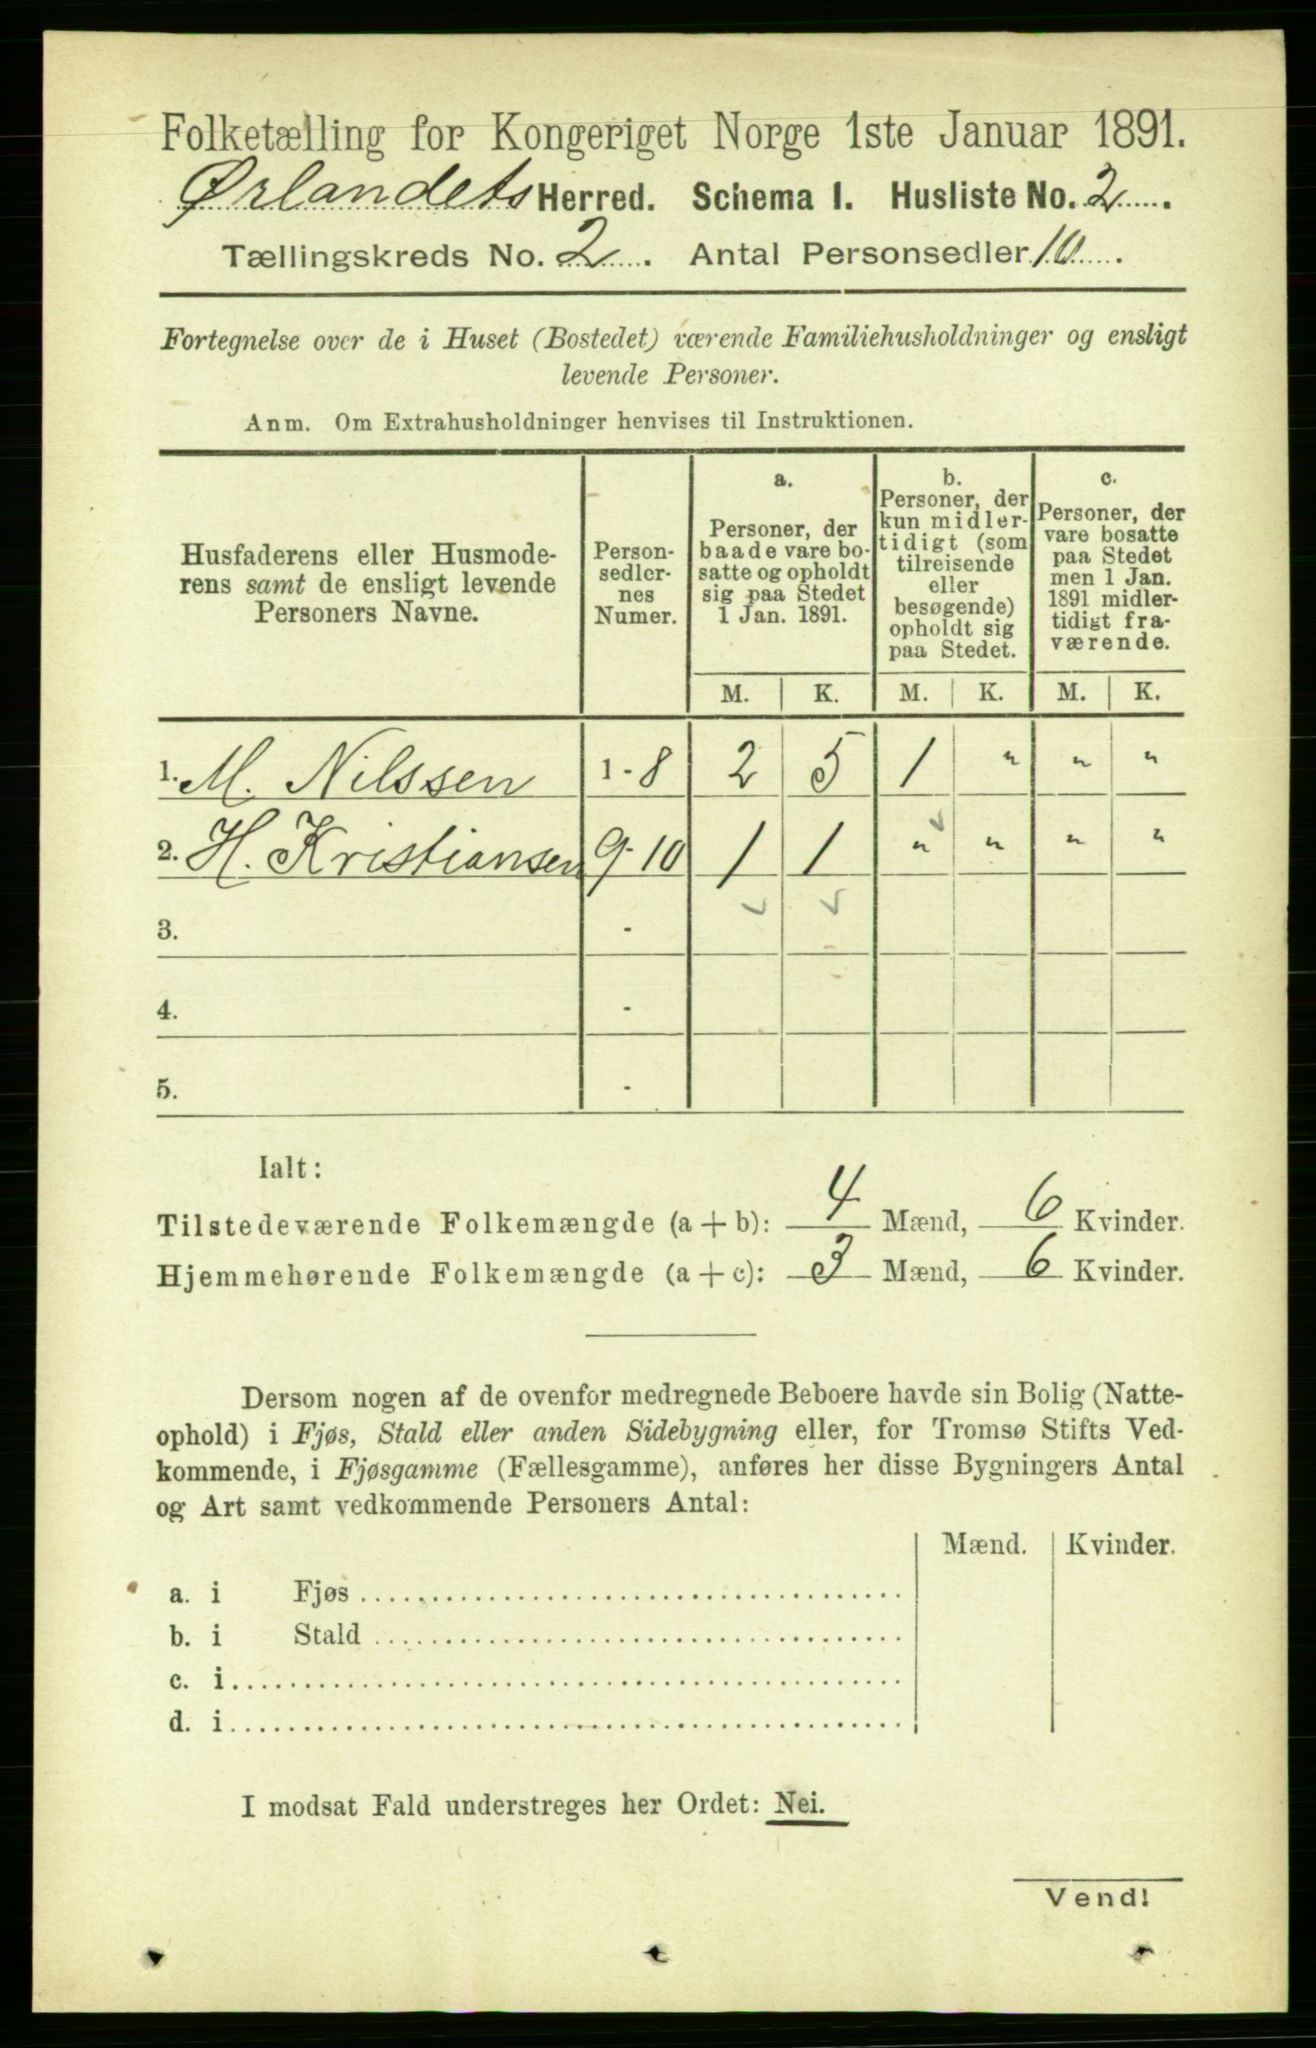 Folketælling for Kongeriget Norge 1ste Januar 1891.
Ørlandets Herred. Schema I. Husliste No. 2.
Tællingskreds No. 2. Antal Personsedler 10.
Fortegnelse over de i Huset (Bostedet) værende Familiehusholdninger og ensligt
levende Personer.
Anm. Om Extrahusholdninger henvises til Instruktionen.
Husfaderens eller Husmode-
rens samt de ensligt levende
Personers Navne.
Person-
sedler-
nes
Numer.
a.
Personer, der
baade vare bo-
satte og opholdt
sig paa Stedet
1 Jan. 1891.
b.
Personer, der
kun midler-
tidigt (som
tilreisende
eller
besøgende)
opholdt sig
paa Stedet.
c.
Personer, der
vare bosatte
paa Stedet
men 1 Jan.
1891 midler-
tidigt fra-
værende.
M. K. M. K. M. K.
1. M. Nilssen 1 - 8 2 5 1 " " "
2. H. Kristiansen 9-10 1 1 " " " "
3. -
4. -
5. -
Ialt:
Tilstedeværende Folkemængde (a + b): 4 Mænd, 6 Kvinder.
Hjemmehørende Folkemængde (a + c): 3 Mænd, 6 Kvinder.
Dersom nogen af de ovenfor medregnede Beboere havde sin Bolig (Natte-
ophold) i Fjøs, Stald eller anden Sidebygning eller, for Tromsø Stifts Ved-
kommende, i Fjøsgamme (Fællesgamme), anføres her disse Bygningers Antal
og Art samt vedkommende Personers Antal:
Mænd. Kvinder.
a. i Fjøs
b. i Stald
c. i
d. i
I modsat Fald understreges her Ordet: Nei.
Vend!